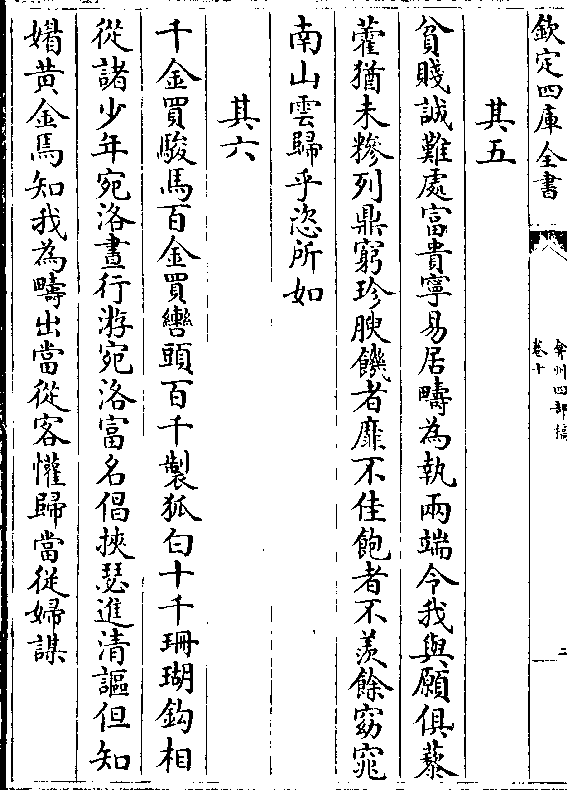 欽定四庫全書
弇州四部稿
卷十
二
其五
貧賤誠難處富貴寧易居疇為執兩端令我與願俱藜
藿猶未糝列鼎窮珍腴饑者靡不佳飽者不羨餘窈窕
南山雲歸乎恣所如
其六
千金買駿馬百金買轡頭百千製狐白十千珊瑚鈎相
從諸少年宛洛晝行游宛洛富名倡挾瑟進清謳但知
媚黃金焉知我為疇出當從客懽歸當從婦謀